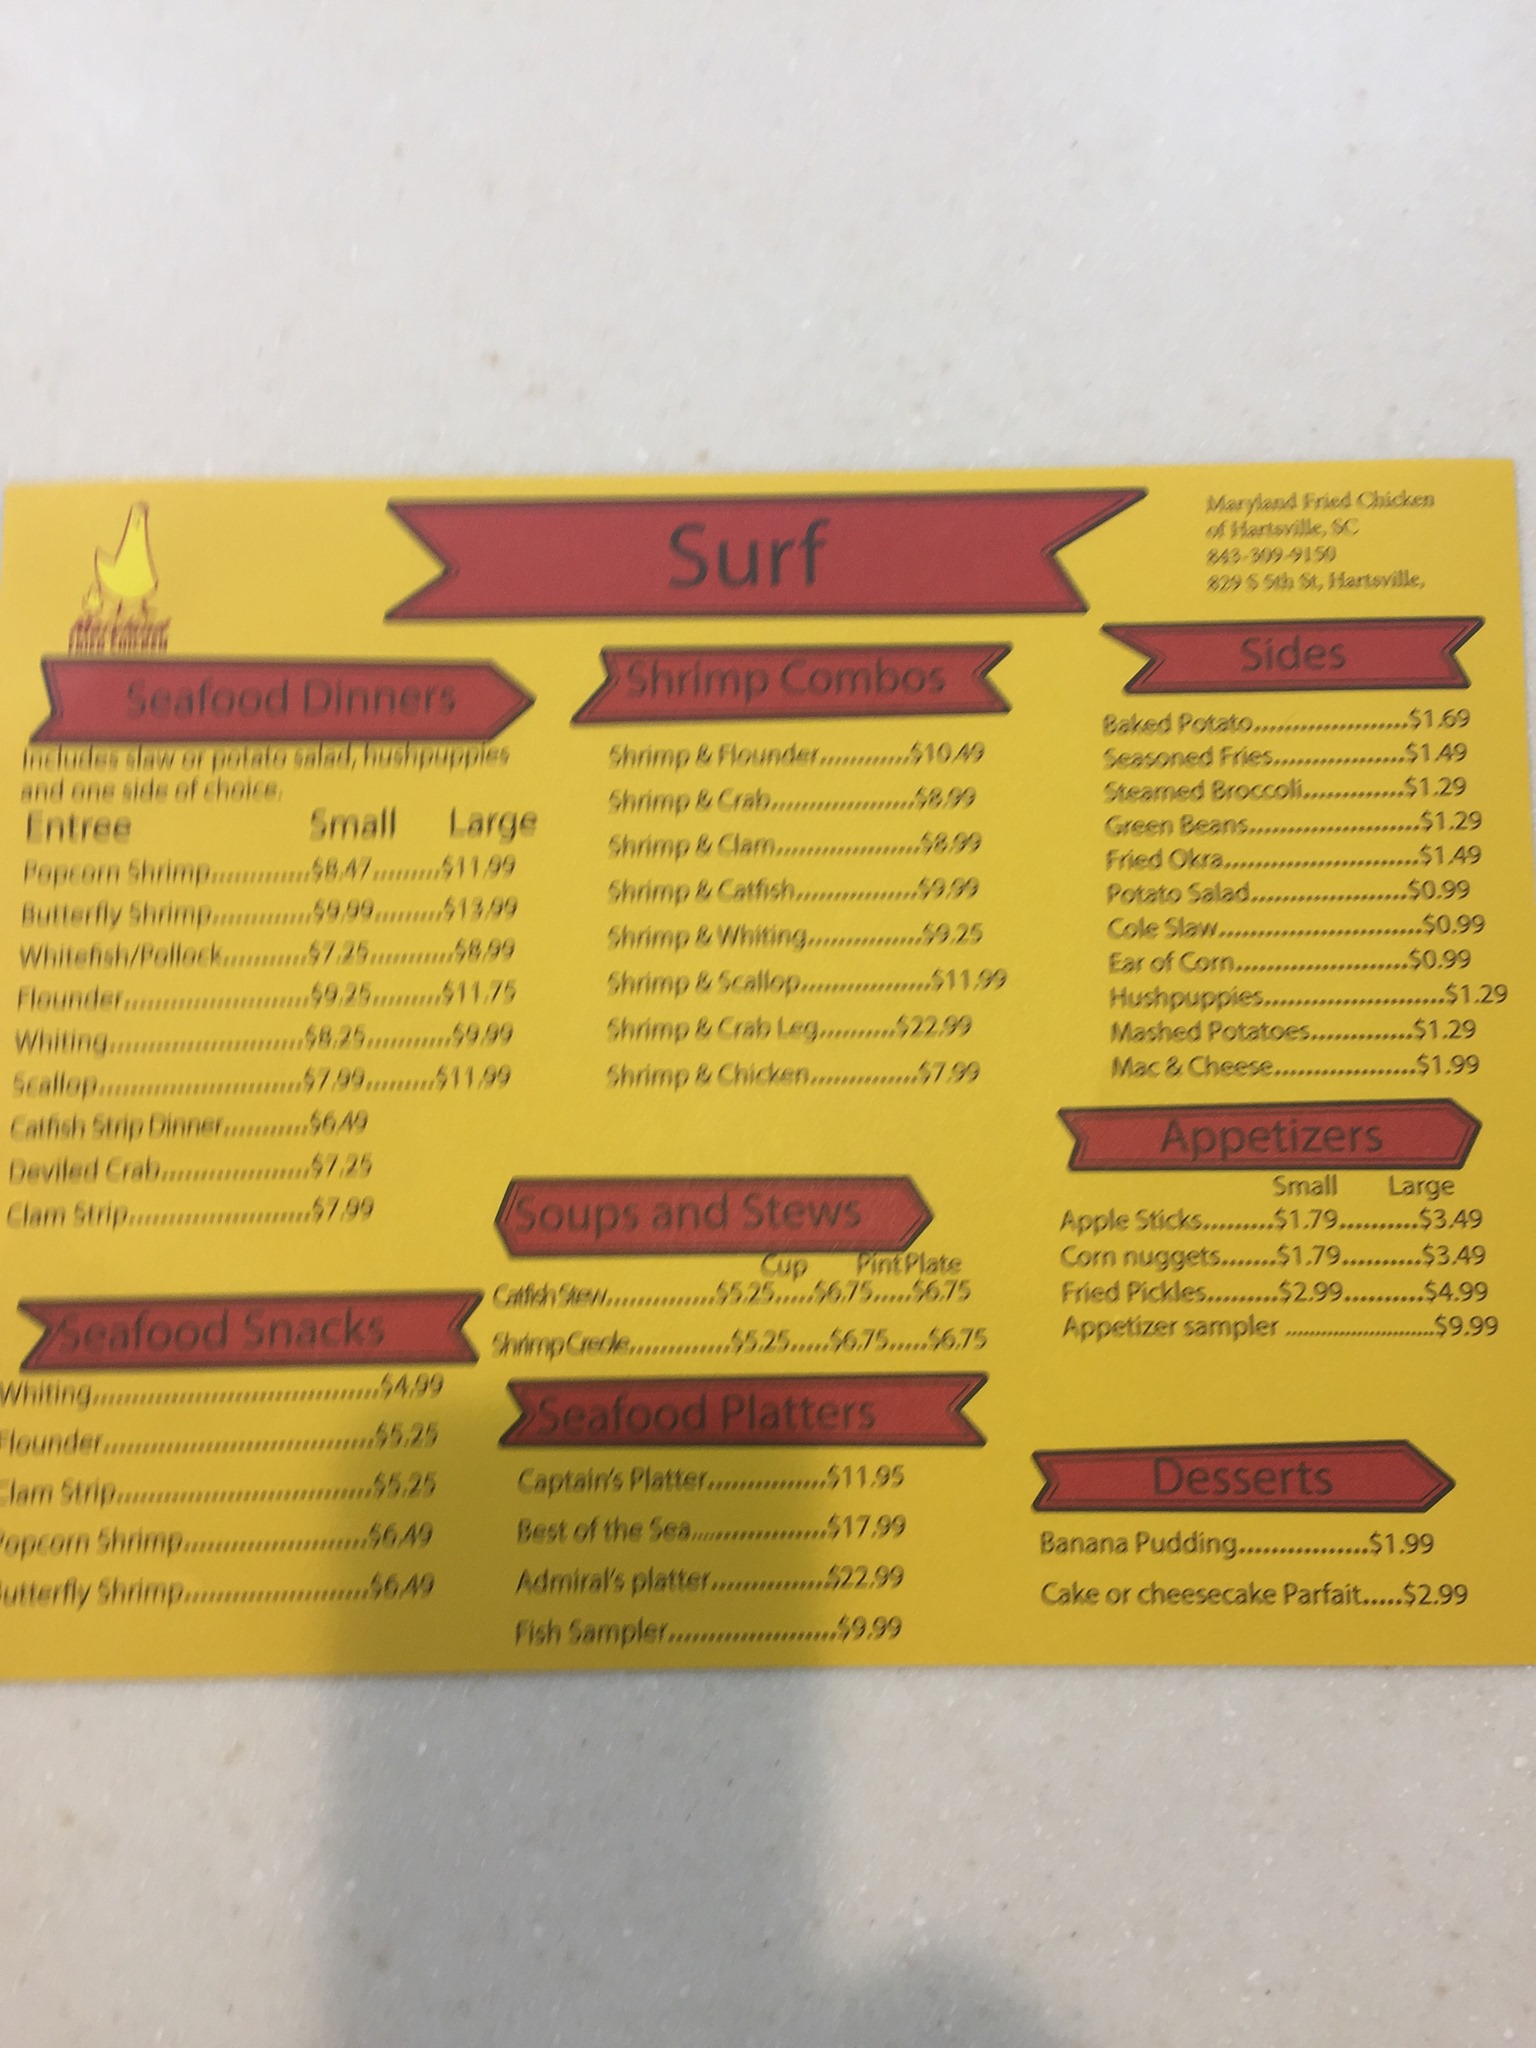 Surf
Maryland Fried Chicken
of Hartsville, SC
843-309-9150
829 S 5th St, Hartsville,
Seafood Dinners
Includes slaw or potato salad, hushpuppies
and one side of choice.
Entree Small Large
Popcorn Shrimp..............$8.47.........$11.99
Butterfly Shrimp..............$9.99.........$13.99
Whitefish/Pollock............$7.25...........$8.99
Flounder..........................$9.25.........$11.75
Whiting...........................$8.25...........$9.99
Scallop............................$7.99.........$11.99
Catfish Strip Dinner...........$6.49
Deviled Crab....................$7.25
Clam Strip........................$7.99
Seafood Snacks
Whiting.......................................$4.99
Flounder.....................................$5.25
Clam Strip...................................$5.25
Popcorn Shrimp.........................$6.49
Butterfly Shrimp.........................$6.49
Shrimp Combos
Shrimp & Flounder............$10.49
Shrimp & Crab...................$8.99
Shrimp & Clam...................$8.99
Shrimp & Catfish................$9.99
Shrimp & Whiting...............$9.25
Shrimp & Scallop.................$11.99
Shrimp & Crab Leg..........$22.99
Shrimp & Chicken..............$7.99
Soups and Stews
Cup Pint Plate
Catfish Stew...............$5.25.....$6.75.....$6.75
Shrimp Creole..............$5.25.....$6.75.....$6.75
Seafood Platters
Captain's Platter...............$11.95
Best of the Sea.................$17.99
Admiral's platter...............$22.99
Fish Sampler......................$9.99
Sides
Baked Potato......................$1.69
Seasoned Fries...................$1.49
Steamed Broccoli..............$1.29
Green Beans........................$1.29
Fried Okra............................$1.49
Potato Salad......................$0.99
Cole Slaw.............................$0.99
Ear of Corn.........................$0.99
Hushpuppies..........................$1.29
Mashed Potatoes...............$1.29
Mac & Cheese....................$1.99
Appetizers
Small Large
Apple Sticks..........$1.79...........$3.49
Corn nuggets.......$1.79...........$3.49
Fried Pickles.........$2.99...........$4.99
Appetizer sampler ..........................$9.99
Desserts
Banana Pudding.................$1.99
Cake or cheesecake Parfait.....$2.99